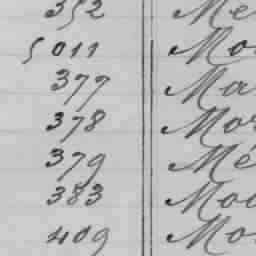 352 Me
5011 Mo
377 Ma
378 Mor
379 Mé
383 Moo
409 Mo